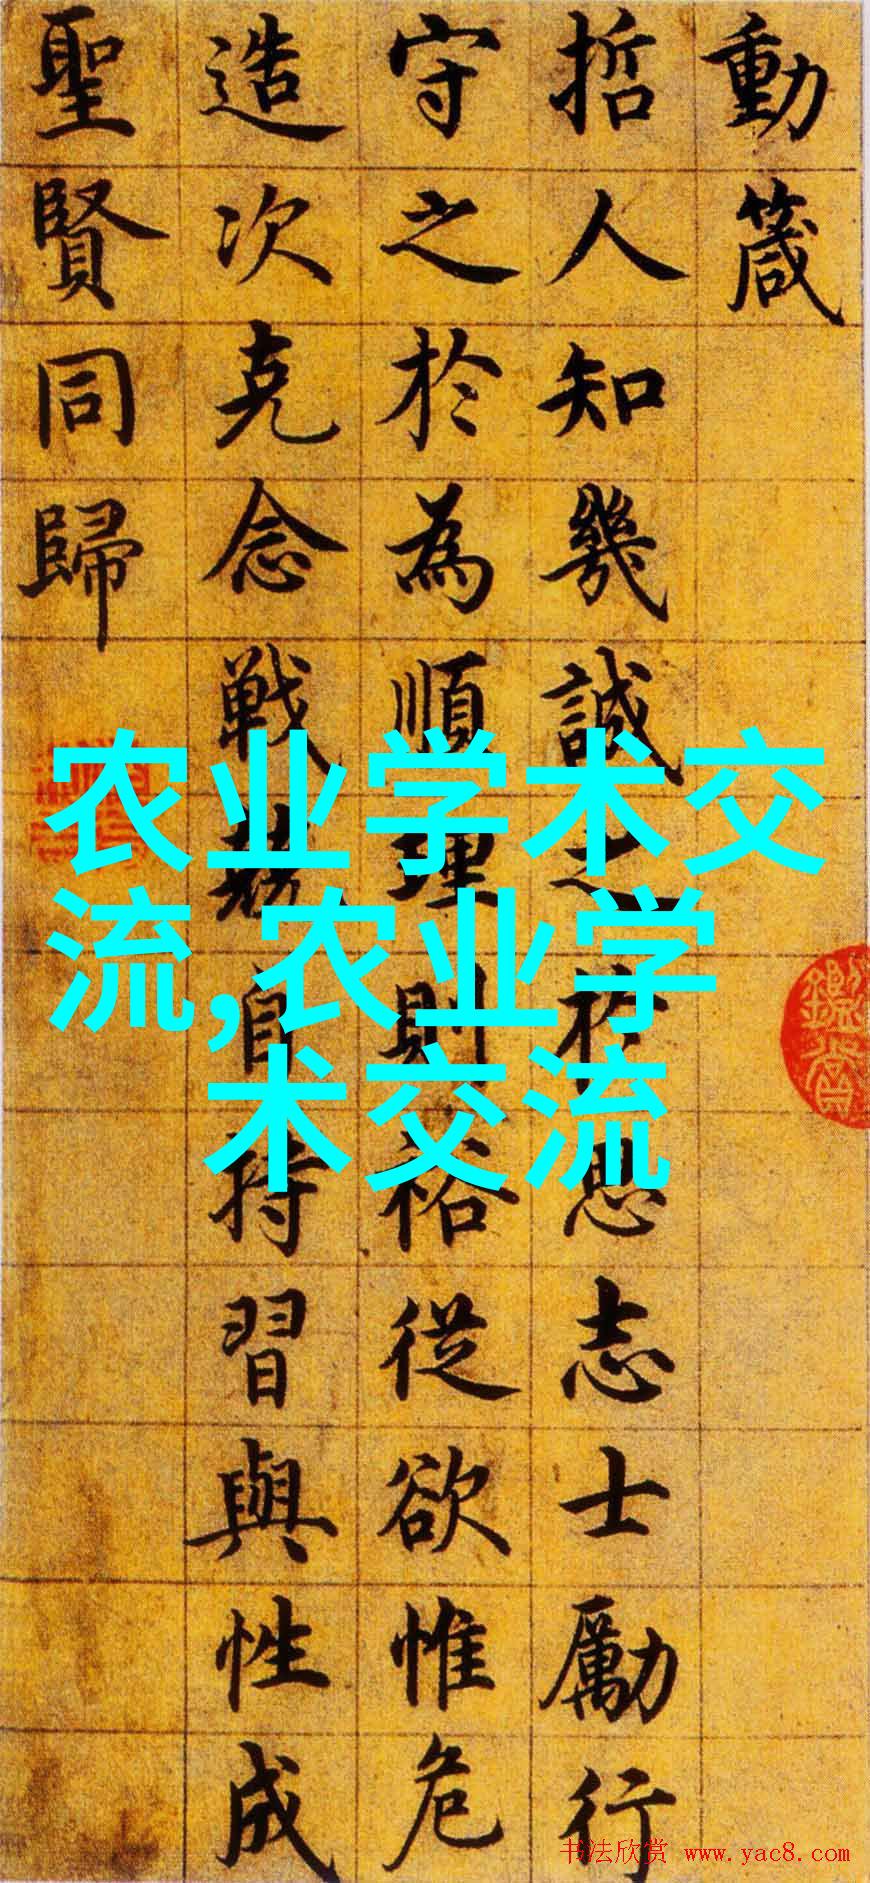 動箴
哲人知幾誠之於思志士勵行
守之於為順理則裕從欲惟危
造次克念戰兢自持習與性成
聖賢同歸
农业学术交
流,农业学
术交流
书法欣赏 www.yac8.com